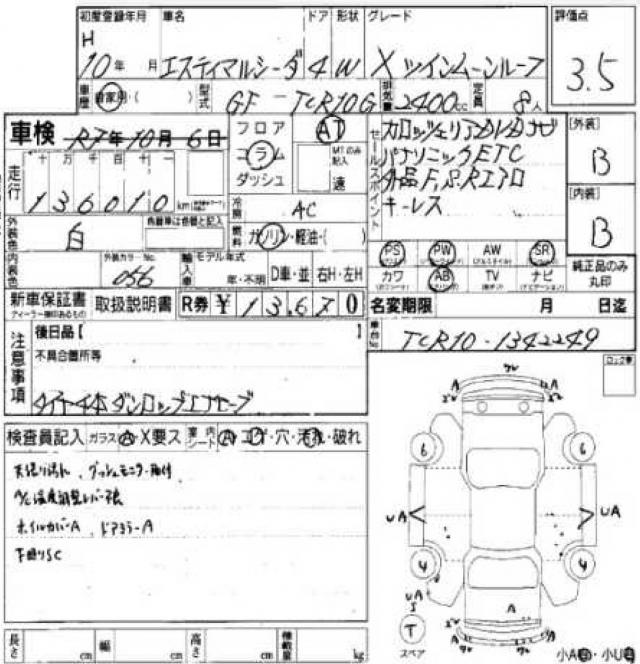 初度登録年月 車名 ドア 形状 グレード 評価点
H 10年 月 エスティマルシーダ 4 W X ツインムーンルーフ 3.5
車歴 自家用・( ) 型式 GF-TCR10G 排気量 2400cc 定員 8人
車検 R7年10月6日
フロア AT
コラム MTのみ記入
ダッシュ 速
セールスポイント
カロッツェリアDVDナビ
パナソニックETC
外品F,S,Rエアロ
キーレス
[外装] B
[内装] B
走行 十万千百十一
136010km
冷房 AC
外装色 白 色替車は色替と記入
燃料 ガソリン・軽油・( )
内装色 外装カラーNo. 056
輸入車 モデル年式 年・不明 D車・並 右H・左H
PS PW AW SR
カワ AB TV ナビ
純正品のみ丸印
新車保証書 取扱説明書 R券 ¥13,670
名変期限 月 日迄
車台No. TCR10-1342249
注意事項
後日品[ ]
不具合箇所等
ロック車
検査員記入 ガラス A・X要ス 室内シート A・コゲ・穴・汚れ・破れ
ホイルカバーA、ドアミラーA
下廻りSC
6 6
UA UA
4 4
UA
A
T
スペア
長さ cm 幅 cm 高さ cm 積載量 kg